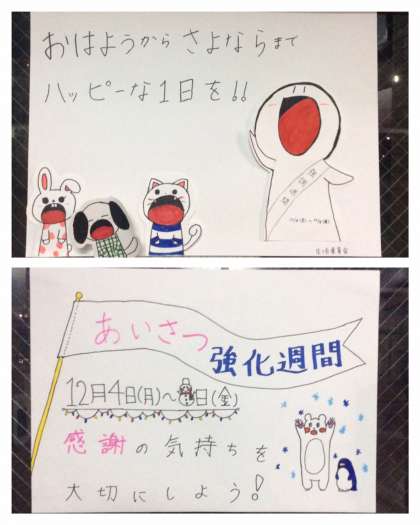 おはようから さよならまで
ハッピーな1日を!!
生活委員会
あいさつ
強化週間
12月4日(月)～8日(金)
感謝の気持ちを
大切にしよう!